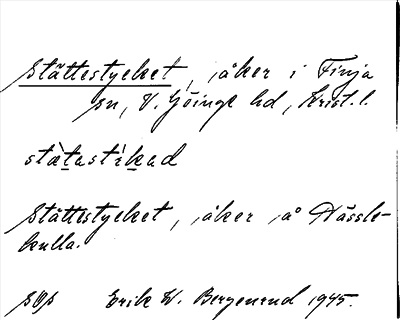 Stättestycket, åker i Finja
sn, V. Göinge hd, Krist. l.
stà̱tastíḵad
Stättestycket, åker å Hässle-
kulla.
Erik W. Bergenrud 1945.